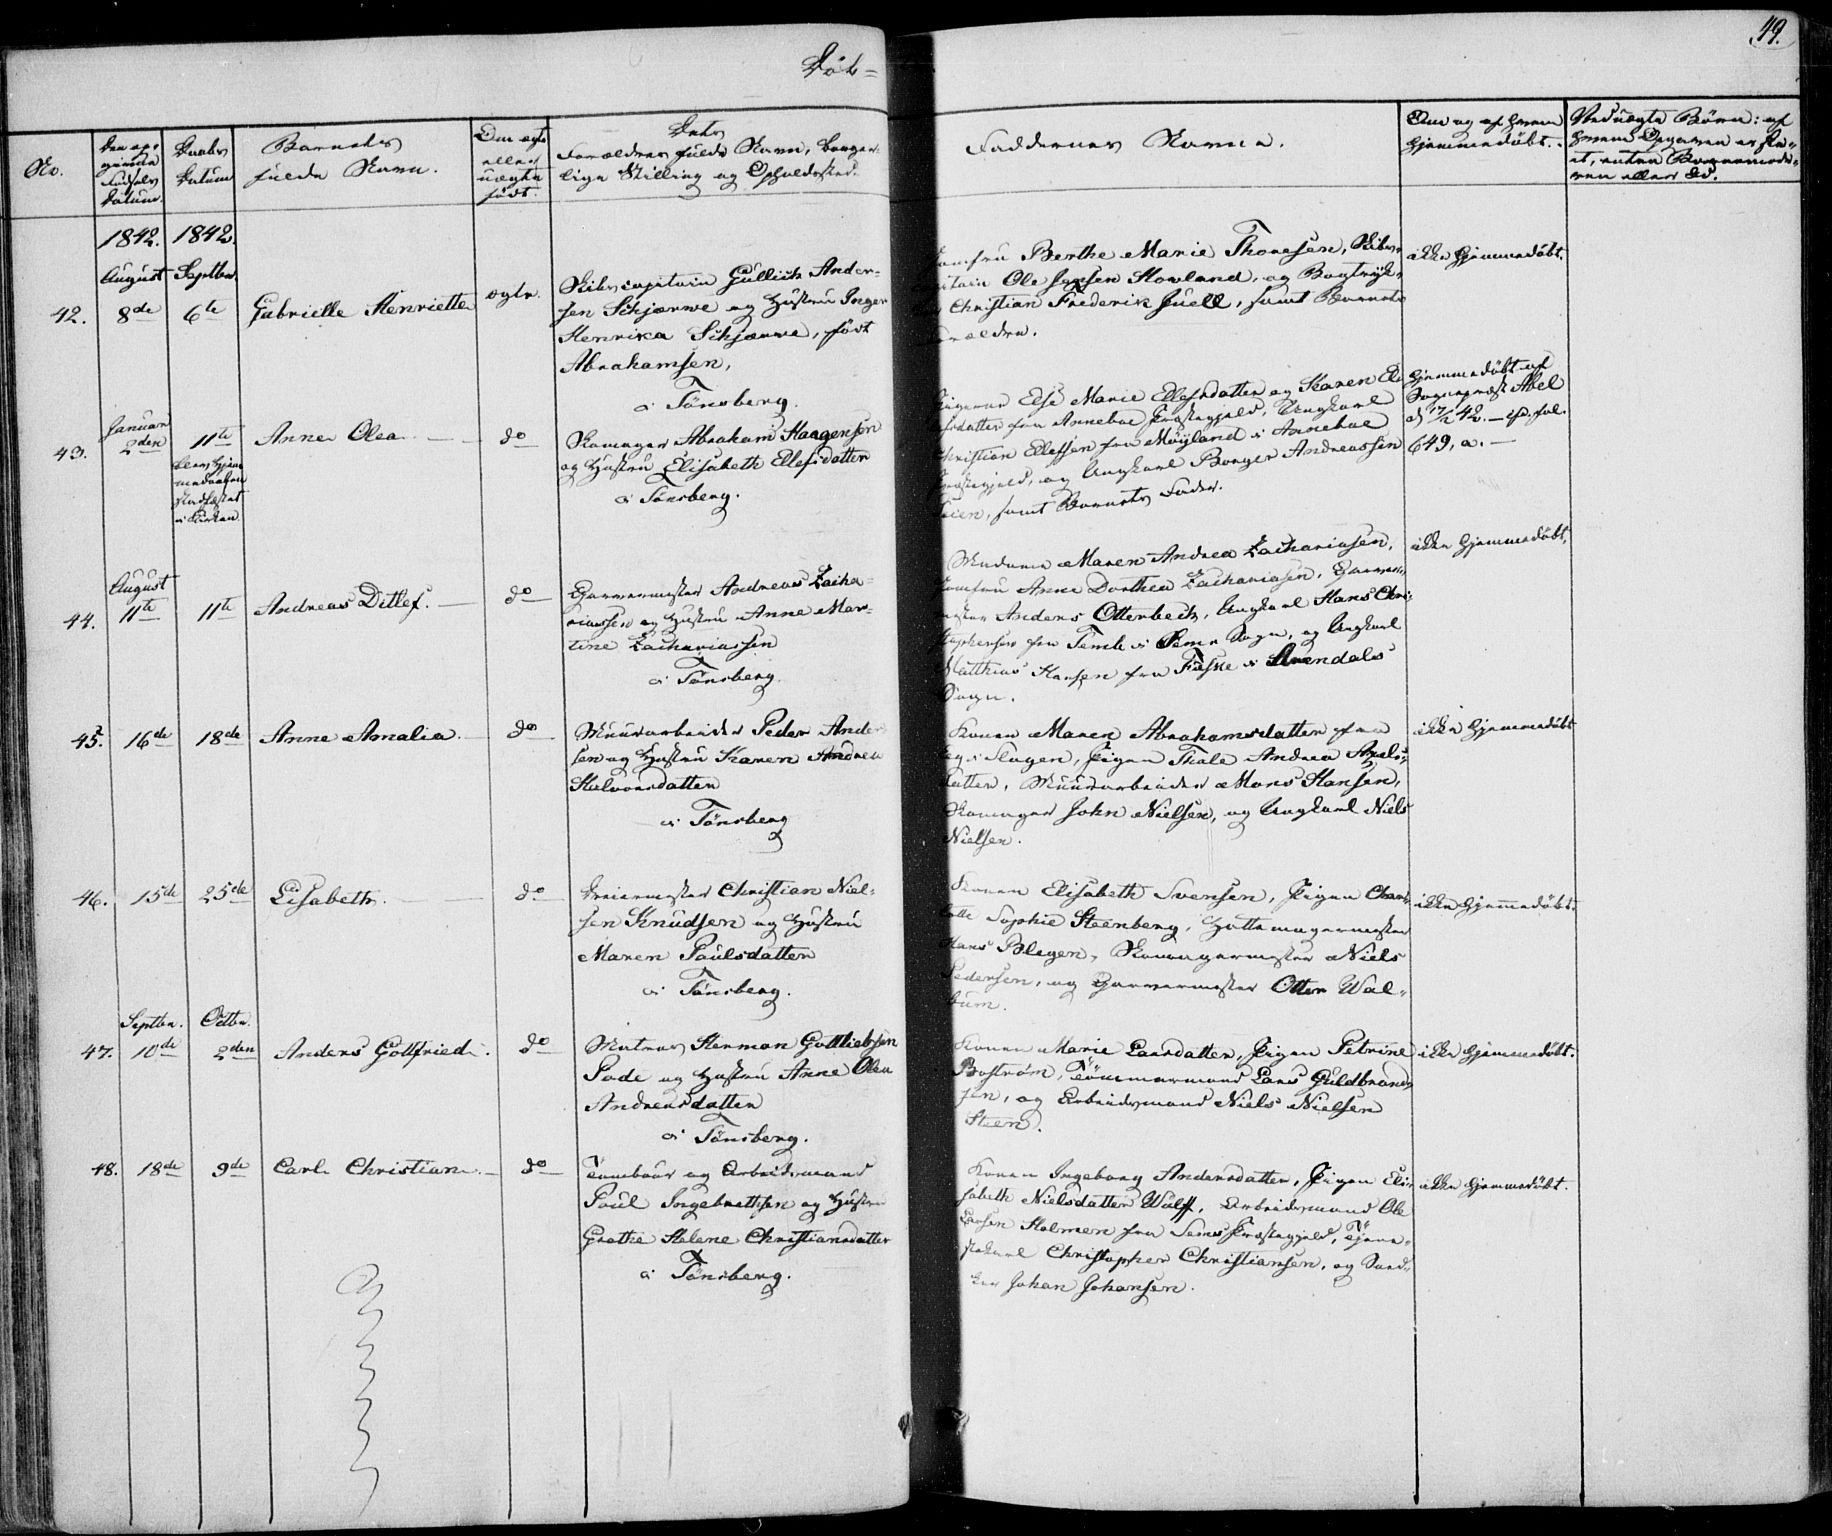 49.
Døb=
No.
Den op-
givne
Fødsels
Datum.
Daabs
Datum
Barnets
fulde Navn.
Om ægte
eller
uægte
født.
Dets
Forældres fulde Navn, Borger-
lige Stilling og Opholdssted.
Faddernes Navne.
Om og af hvem
hjemmedøbt.
Ved uægte Børn: af
hvem Opgaven er ske-
et, enten Barnemode-
ren eller Ed.
1842. 1842.
August Septbr.
42. 8de 6te Gabrielle Henriette ægte.
Skibscapitain Gullich Ander-
sen Schjærve og Hustru Inger
Henrica Schjærve, født
Abrahamsen,
i Tönsberg.
Jomfru Berthe Marie Thoresen, Skibs-
capitain Ole Jensen Hovland, og Bogtryk-
Christian Frederik Juell, samt Barnets
Forældre.
ikke hjemmedøbt.
Januar
43. 2den 11te Anne Olea do
dens hjem-
medaaben
stadfæstet
i Kirken
Skomager Abraham Haagensen
og Hustru Elisabeth Ellefsdatter
i Tönsberg.
Pigerne Else Marie Ellefsdatter og Karen El-
lefsdatter fra Anneboe Præstegjeld, Ungkarl
Christian Ellefsen fra Möyland i Anneboe
Præstegjeld, og Ungkarl Borger Andreassen
samt Barnets Fader.
Hjemmedøbt af
Sogneprest Abel
d 17/2 42. — cfr. fol.
649, a. —
August
44. 11te 11te Andreas Ditlef. do
Garvermester Andreas Zacha-
riassen og Hustru Anne Mar-
tine Zachariassen
i Tönsberg.
Madame Maren Andrea Zachariasen,
Jomfru Anne Dorthea Zachariasen, Garver-
mester Anders Otterbech, Ungkarl Hans Chri-
stophersen fra Temb i Sems Sogn, og Ungkarl
Matthias Hansen fra Fuske i Arendals
Sogn.
ikke hjemmedøbt.
45. 16de 18de Anne Amalia. do
Muurarbeider Peder Ander-
sen og Hustru Karen Andrea
Halvorsdatter
i Tönsberg
Konen Maren Abrahamsdatter fra
i Slagen, Pigen Thale Andrea Axels-
datter, Muurarbeider Mons Hansen,
Skomager John Nielsen, og Ungkarl Niels
Nielsen.
ikke hjemmedøbt
46. 15de 25de Lisabeth. do
Dreiermester Christian Niel-
sen Knudsen og Hustru
Maren Paulsdatter
i Tönsberg.
Konen Elisabeth Svensen, Pigen Char-
lotte Sophie Steenberg, Hattemagermester
Hans Blegen, Skomagermester Niels
Pedersen, og Garvermester Otter Wal-
bum.
ikke hjemmedøbt.
Septbr. Octbr.
47. 10de 2den Anders Gottfried. do
Matros Herman Gottliebsen
Pade og Hustru Anne Olea
Andersdatter
i Tönsberg.
Konen Marie Larsdatter, Pigen Petrine
Boström, Tömmermand Lars Guldbrand-
sen, og Arbeidsmand Niels Nielsen
Steen.
ikke hjemmedøbt.
48. 18de 9de Carl Christian. do
Tambour og Arbeidsmand
Paul Ingebrethsen og Hustru
Grethe Helene Christiansdatter
i Tönsberg.
Konen Ingeborg Andersdatter, Pigen Eli-
sabeth Nielsdatter Wulff, Arbeidsmand Ole
Larsen Holmen fra Sems Præstegjeld, Tjene-
stekarl Christopher Christiansen, og Sned-
ker Johan Johansen.
ikke hjemmedøbt.